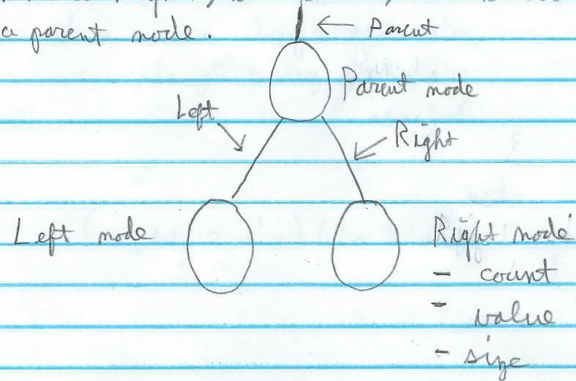 a parent node.
← Parent
Parent node
Left
Right
Left node
Right node
- count
- value
- size